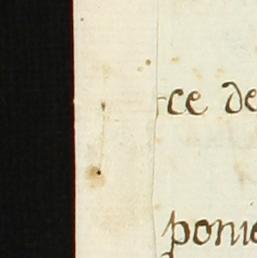 ce de
poni